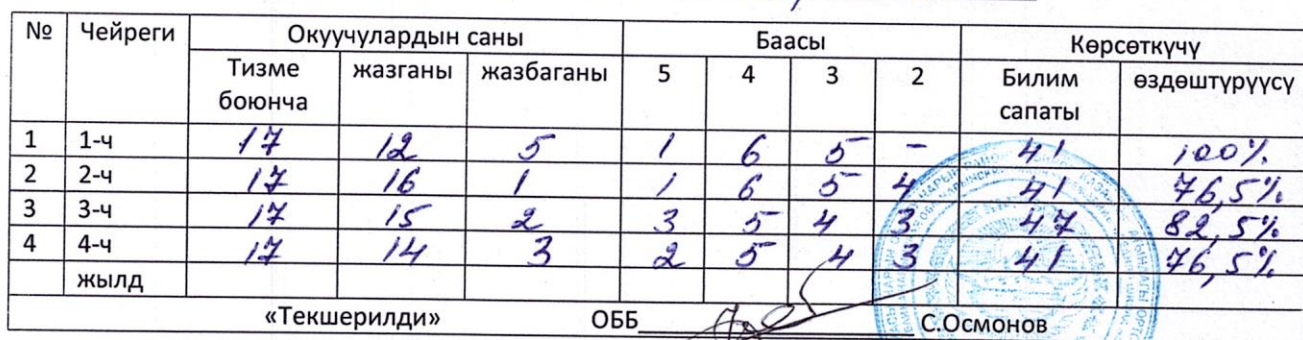 № Чейреги Окуучулардын саны Баасы Көрсөткүчү
Тизме боюнча жазганы жазбаганы 5 4 3 2 Билим сапаты өздөштүрүүсү
1 1-ч 17 12 5 1 6 5 - 41 100%
2 2-ч 17 16 1 1 6 5 4 41 76,5%
3 3-ч 17 15 2 3 5 4 3 47 82,5%
4 4-ч 17 14 3 2 5 4 3 41 76,5%
жылд
«Текшерилди» ОББ С.Осмонов